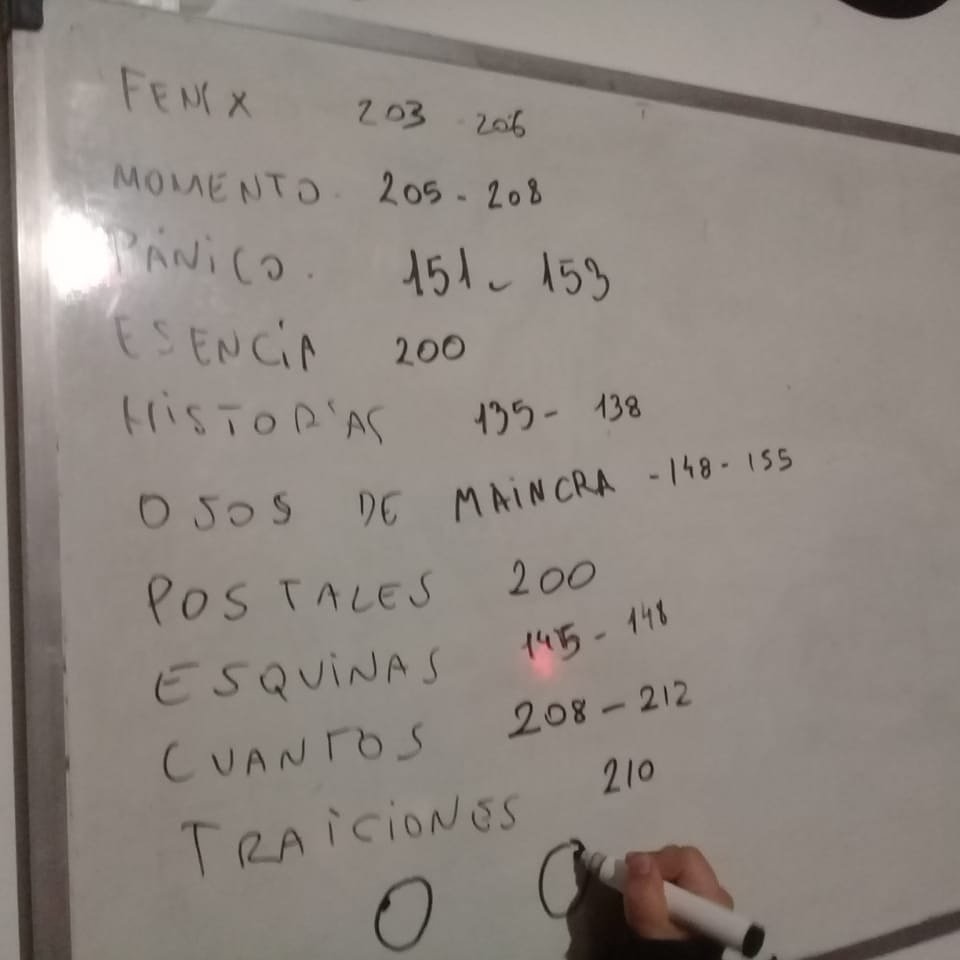 FENIX 203 - 206
MOMENTO. 205 - 208
PÁNICO. 151 - 153
ESENCIA 200
HISTORIAS 135 - 138
OJOS DE MAINCRA - 148 - 155
POSTALES 200
ESQUINAS 145 - 148
CUANTOS 208 - 212
TRAICIONES 210
O O